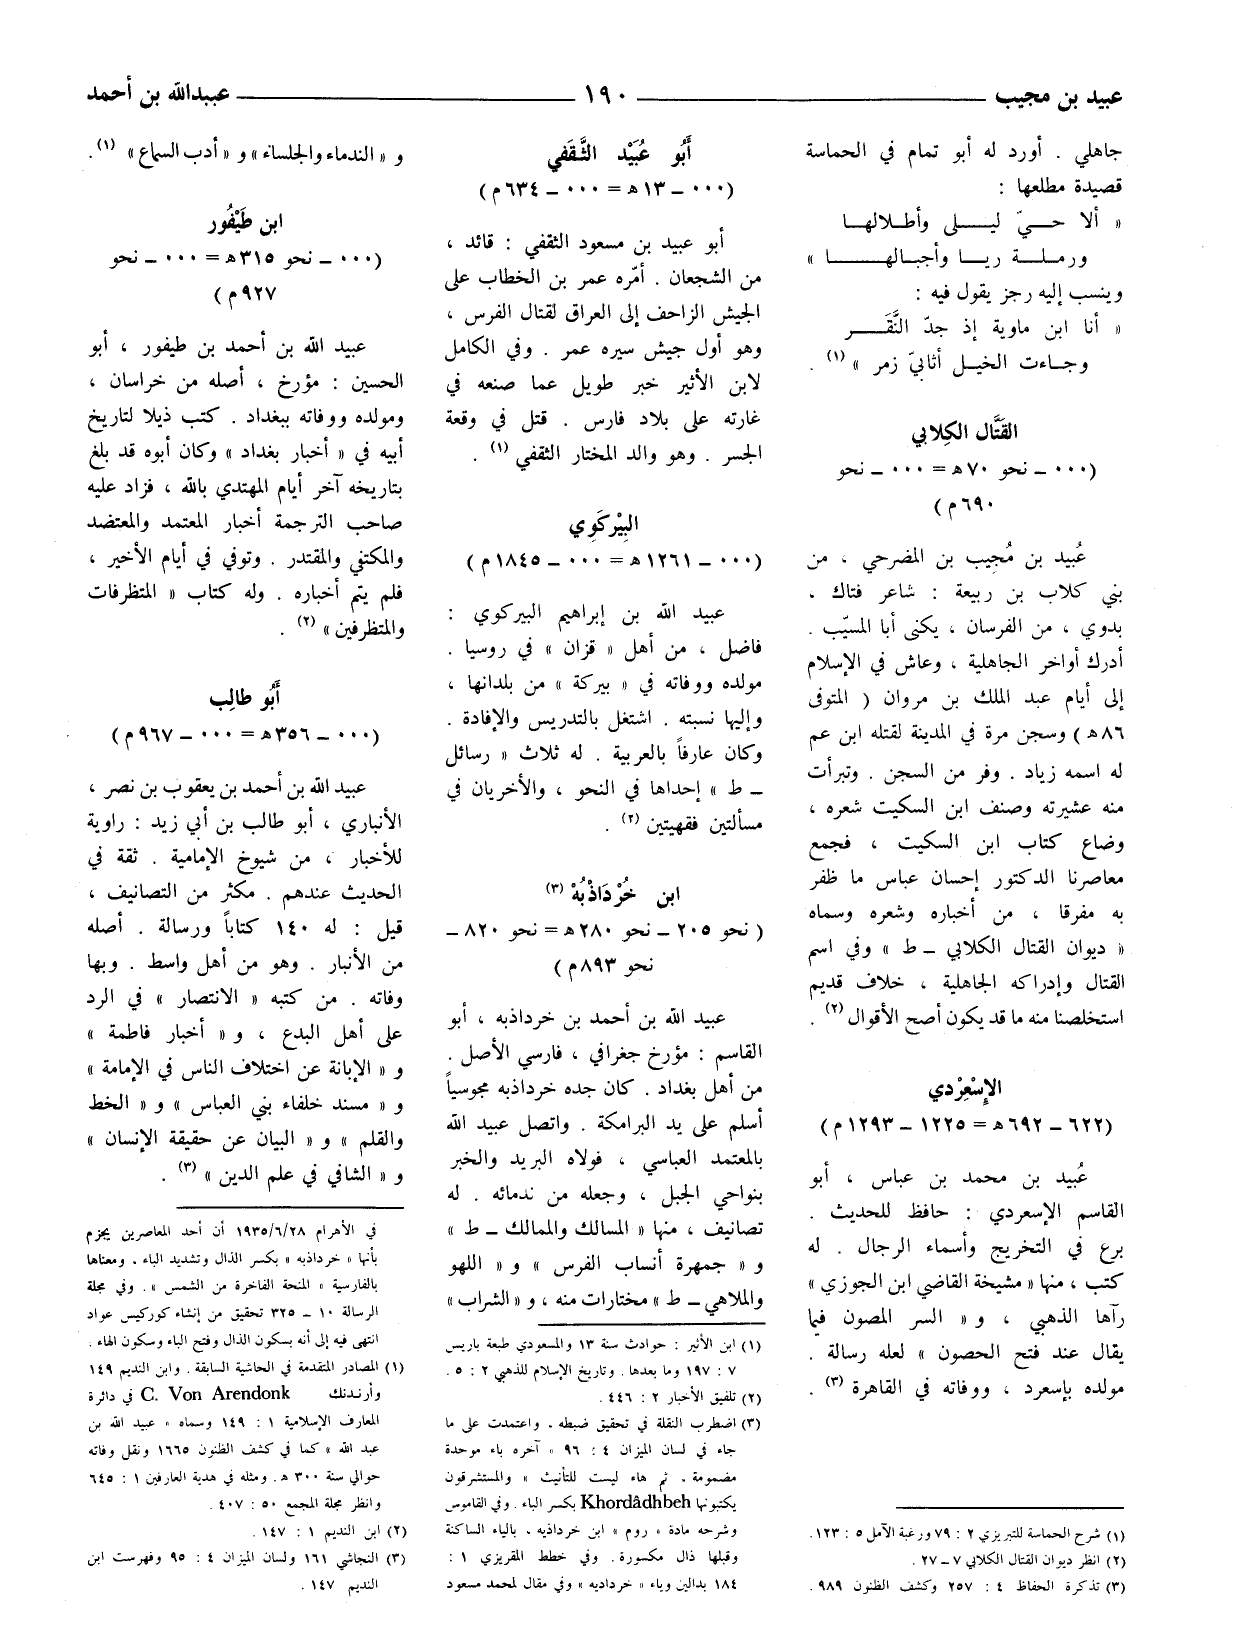 عبيد بن مجيب
١٩٠
عبيدالله بن أحمد
جاهلي . أورد له أبو تمام في الحماسة
قصيدة مطلعها :
« ألا حـــيّ ليـــلى وأطـلالهــا
ورمــلــة ريــا وأجبـالهـــا »
وينسب إليه رجز يقول فيه :
« أنا ابن ماوية إذ جدّ النَّقَـــر
وجـاءت الخيـل أثابيّ زمر » (١) .
القَتَّال الكِلابي
(٠٠٠ – نحو ٧٠ هـ = ٠٠٠ – نحو
٦٩٠ م)
عُبيد بن مُجيب بن المضرحي ، من
بني كلاب بن ربيعة : شاعر فتاك ،
بدوي ، من الفرسان ، يكنى أبا المسيّب .
أدرك أواخر الجاهلية ، وعاش في الإسلام
إلى أيام عبد الملك بن مروان ( المتوفى
٨٦ هـ) وسجن مرة في المدينة لقتله ابن عم
له اسمه زياد . وفر من السجن . وتبرأت
منه عشيرته وصنف ابن السكيت شعره ،
وضاع كتاب ابن السكيت ، فجمع
معاصرنا الدكتور إحسان عباس ما ظفر
به مفرقا ، من أخباره وشعره وسماه
« ديوان القتال الكلابي – ط » وفي اسم
القتال وإدراكه الجاهلية ، خلاف قديم
استخلصنا منه ما قد يكون أصح الأقوال (٢) .
الإِسْعِرْدي
(٦٢٢ – ٦٩٢ هـ = ١٢٢٥ – ١٢٩٣ م)
عُبيد بن محمد بن عباس ، أبو
القاسم الإسعردي : حافظ للحديث .
برع في التخريج وأسماء الرجال . له
كتب ، منها « مشيخة القاضي ابن الجوزي »
رآها الذهبي ، و « السر المصون فيما
يقال عند فتح الحصون » لعله رسالة .
مولده بإسعرد ، ووفاته في القاهرة (٣) .
(١) شرح الحماسة للتبريزي ٢ : ٧٩ ورغبة الآمل ٥ : ١٢٣.
(٢) انظر ديوان القتال الكلابي ٧ – ٢٧ .
(٣) تذكرة الحفاظ ٤ : ٢٥٧ وكشف الظنون ٩٨٩ .
أَبُو عُبَيْد الثَّقَفي
(٠٠٠ – ١٣ هـ = ٠٠٠ – ٦٣٤ م)
أبو عبيد بن مسعود الثقفي : قائد ،
من الشجعان . أمّره عمر بن الخطاب على
الجيش الزاحف إلى العراق لقتال الفرس ،
وهو أول جيش سيره عمر . وفي الكامل
لابن الأثير خبر طويل عما صنعه في
غارته على بلاد فارس . قتل في وقعة
الجسر . وهو والد المختار الثقفي (١) .
البِيْركَوِي
(٠٠٠ – ١٢٦١ هـ = ٠٠٠ – ١٨٤٥ م)
عبيد الله بن إبراهيم البيركوي :
فاضل ، من أهل « قزان » في روسيا .
مولده ووفاته في « بيركة » من بلدانها ،
وإليها نسبته . اشتغل بالتدريس والإفادة .
وكان عارفاً بالعربية . له ثلاث « رسائل
– ط » إحداها في النحو ، والأخريان في
مسألتين فقهيتين (٢) .
ابن خُرْدَاذْبُهْ (٣)
( نحو ٢٠٥ – نحو ٢٨٠ هـ = نحو ٨٢٠ –
نحو ٨٩٣ م)
عبيد الله بن أحمد بن خرداذبه ، أبو
القاسم : مؤرخ جغرافي ، فارسي الأصل .
من أهل بغداد . كان جده خرداذبه مجوسياً
أسلم على يد البرامكة . واتصل عبيد الله
بالمعتمد العباسي ، فولاه البريد والخبر
بنواحي الجبل ، وجعله من ندمائه . له
تصانيف ، منها « المسالك والممالك – ط »
و « جمهرة أنساب الفرس » و « اللهو
والملاهي – ط » مختارات منه ، و « الشراب»
(١) ابن الأثير : حوادث سنة ١٣ والمسعودي طبعة باريس
٧ : ١٩٧ وما بعدها . وتاريخ الإسلام للذهبي ٢ : ٥ .
(٢) تلفيق الأخبار ٢ : ٤٤٦ .
(٣) اضطرب النقلة في تحقيق ضبطه . واعتمدت على ما
جاء في لسان الميزان ٤ : ٩٦ « آخره باء موحدة
مضمومة ، ثم هاء ليست للتأنيث » والمستشرقون
يكتبونها Khordâdhbeh بكسر الباء . وفي القاموس
وشرحه مادة « روم » ابن خرداذبه ، بالياء الساكنة
وقبلها ذال مكسورة . وفي خطط المقريزي ١ :
١٨٤ بدالين وياء « خردادبه » وفي مقال لمحمد مسعود
و « الندماء والجلساء » و « أدب السماع » (١) .
ابن طَيْفُور
(٠٠٠ – نحو ٣١٥ هـ = ٠٠٠ – نحو
٩٢٧ م)
عبيد الله بن أحمد بن طيفور ، أبو
الحسين : مؤرخ ، أصله من خراسان ،
ومولده ووفاته ببغداد . كتب ذيلا لتاريخ
أبيه في « أخبار بغداد » وكان أبوه قد بلغ
بتاريخه آخر أيام المهتدي بالله ، فزاد عليه
صاحب الترجمة أخبار المعتمد والمعتضد
والمكتفي والمقتدر . وتوفي في أيام الأخير ،
فلم يتم أخباره . وله كتاب « المتظرفات
والمتظرفين » (٢) .
أَبُو طالِب
(٠٠٠ – ٣٥٦ هـ = ٠٠٠ – ٩٦٧ م)
عبيد الله بن أحمد بن يعقوب بن نصر ،
الأنباري ، أبو طالب بن أبي زيد : راوية
للأخبار ، من شيوخ الإمامية . ثقة في
الحديث عندهم . مكثر من التصانيف ،
قيل : له ١٤٠ كتاباً ورسالة . أصله
من الأنبار . وهو من أهل واسط . وبها
وفاته . من كتبه « الانتصار » في الرد
على أهل البدع ، و « أخبار فاطمة »
و « الإبانة عن اختلاف الناس في الإمامة »
و « مسند خلفاء بني العباس » و « الخط
والقلم » و « البيان عن حقيقة الإنسان »
و « الشافي في علم الدين » (٣) .
في الأهرام ١٩٣٥/٦/٢٨ أن أحد المعاصرين يجزم
بأنها « خرداذبه » بكسر الذال وتشديد الباء . ومعناها
بالفارسية « المنحة الفاخرة من الشمس » . وفي مجلة
الرسالة ١٠ – ٣٢٥ تحقيق من إنشاء كوركيس عواد
انتهى فيه إلى أنه بسكون الذال وفتح الباء وسكون الهاء .
(١) المصادر المتقدمة في الحاشية السابقة . وابن النديم ١٤٩
وأرندنك C. Von Arendonk في دائرة
المعارف الإسلامية ١ : ١٤٩ وسماه « عبيد الله بن
عبد الله » كما في كشف الظنون ١٦٦٥ ونقل وفاته
حوالي سنة ٣٠٠ هـ . ومثله في هدية العارفين ١ : ٦٤٥
وانظر مجلة المجمع ٥٠ : ٤٠٧ .
(٢) ابن النديم ١ : ١٤٧ .
(٣) النجاشي ١٦١ ولسان الميزان ٤ : ٩٥ وفهرست ابن
النديم ١٤٧ .